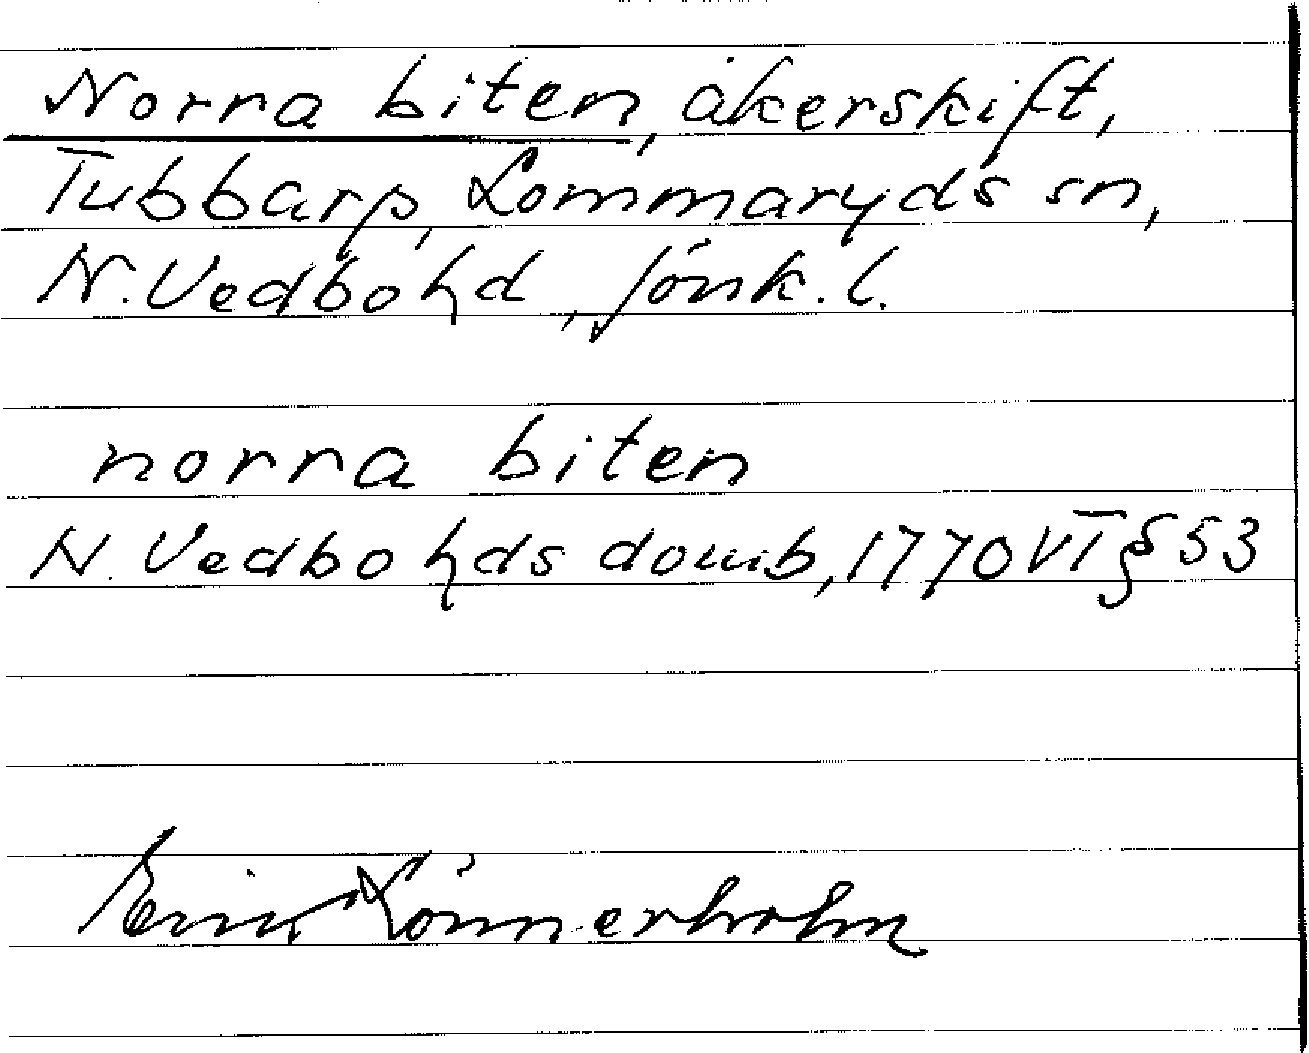 Norra biten, åkerskift,
Tubbarp, Lommaryds sn,
N. Vedbo hd, Jönk. l.
norra biten
N. Vedbo hds domb, 1770 VT § 53
Erik Lönnerholm